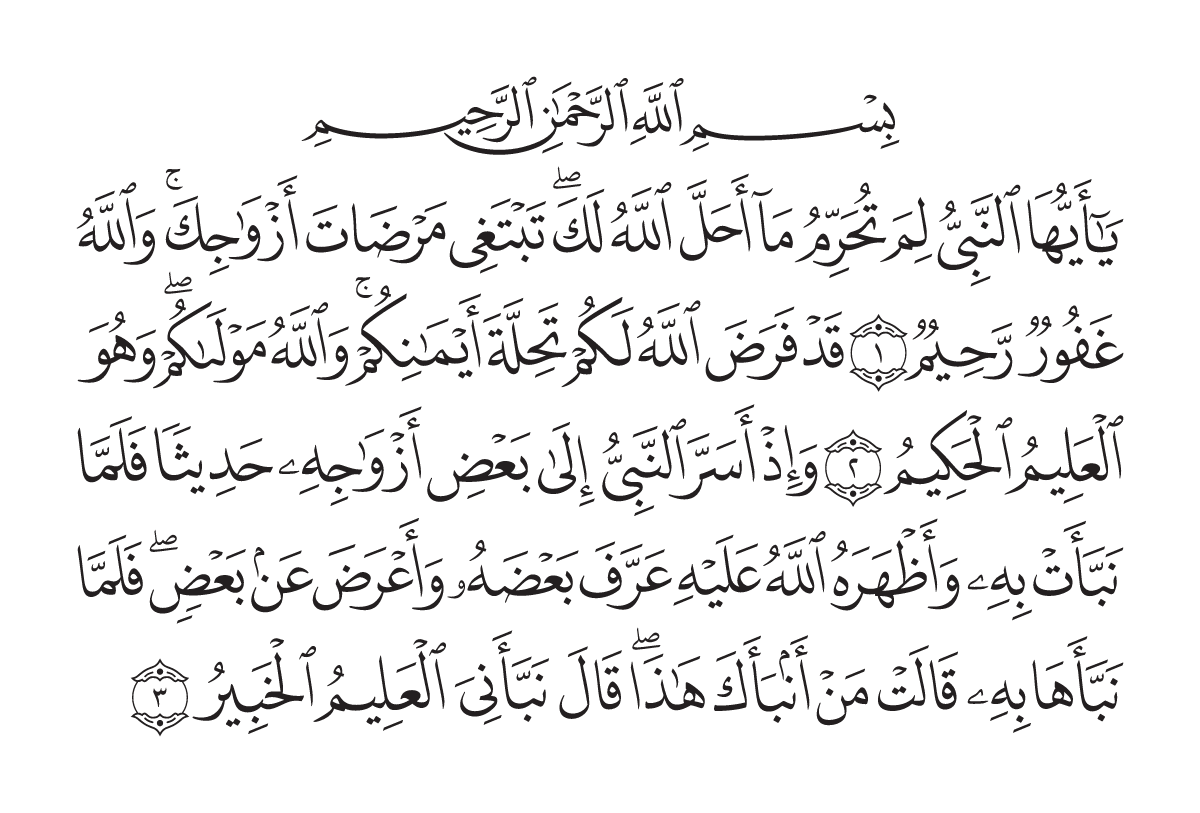 بِسْمِ ٱللَّهِ ٱلرَّحْمَٰنِ ٱلرَّحِيمِ
يَٰٓأَيُّهَا ٱلنَّبِىُّ لِمَ تُحَرِّمُ مَآ أَحَلَّ ٱللَّهُ لَكَ ۖ تَبْتَغِى مَرْضَاتَ أَزْوَٰجِكَ ۚ وَٱللَّهُ
غَفُورٌ رَّحِيمٌ ١ قَدْ فَرَضَ ٱللَّهُ لَكُمْ تَحِلَّةَ أَيْمَٰنِكُمْ ۚ وَٱللَّهُ مَوْلَىٰكُمْ ۖ وَهُوَ
ٱلْعَلِيمُ ٱلْحَكِيمُ ٢ وَإِذْ أَسَرَّ ٱلنَّبِىُّ إِلَىٰ بَعْضِ أَزْوَٰجِهِۦ حَدِيثًا فَلَمَّا
نَبَّأَتْ بِهِۦ وَأَظْهَرَهُ ٱللَّهُ عَلَيْهِ عَرَّفَ بَعْضَهُۥ وَأَعْرَضَ عَنۢ بَعْضٍ ۖ فَلَمَّا
نَبَّأَهَا بِهِۦ قَالَتْ مَنْ أَنۢبَأَكَ هَٰذَا ۖ قَالَ نَبَّأَنِىَ ٱلْعَلِيمُ ٱلْخَبِيرُ ٣